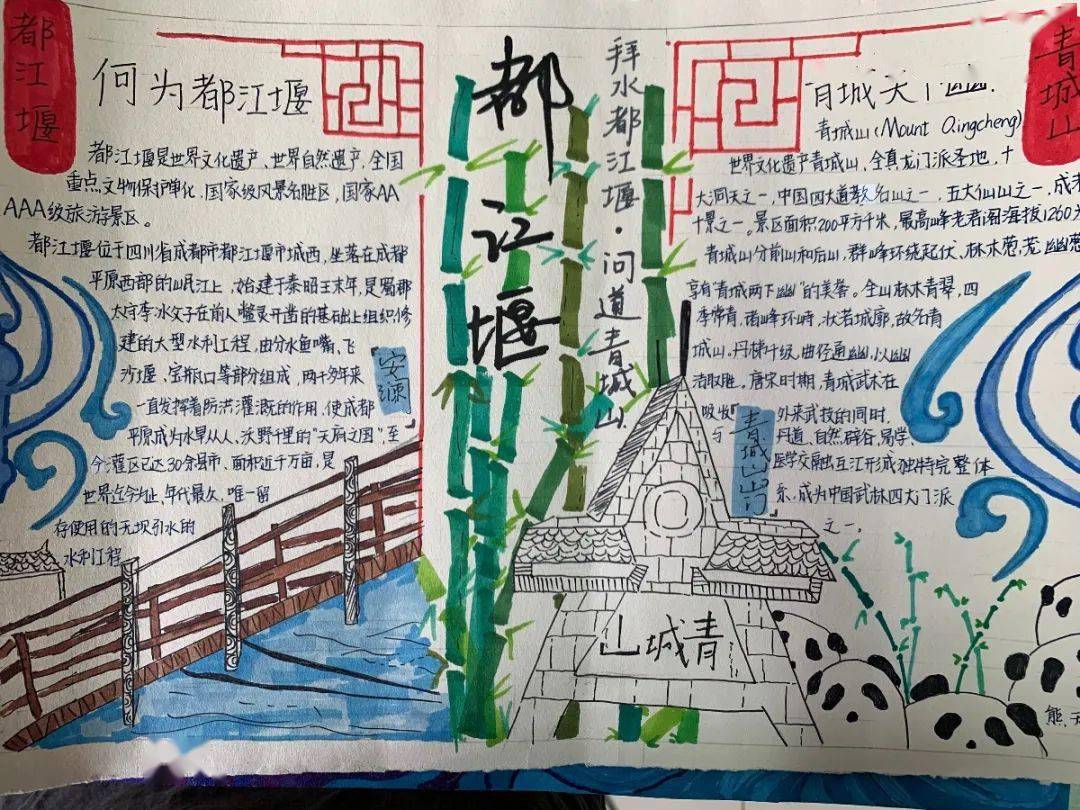 都江堰
何为都江堰
都江堰是世界文化遗产、世界自然遗产、全国
重点文物保护单位、国家级风景名胜区、国家AA
AAA级旅游景区。
都江堰位于四川省成都市都江堰市城西,坐落在成都
平原西部的岷江上,始建于秦昭王末年,是蜀郡
太守李冰父子在前人鳖灵开凿的基础上组织修
建的大型水利工程,由分水鱼嘴、飞
沙堰、宝瓶口等部分组成,两千多年来
一直发挥着防洪灌溉的作用,使成都
平原成为水旱从人、沃野千里的"天府之国",至
今灌区已达30余县市、面积近千万亩,是
世界迄今为止,年代最久、唯一留
存使用的无坝引水的
水利工程
安澜
都江堰
拜水都江堰·问道青城山
青城山
青城天下幽
青城山(Mount Qingcheng)
世界文化遗产青城山,全真龙门派圣地,十
大洞天之一,中国四大道教名山之一,五大仙山之一,成都
十景之一。景区面积200平方千米,最高峰老君阁海拔1260
青城山分前山和后山,群峰环绕起伏、林木葱茏幽
享有"青城天下幽"的美誉。全山林木青翠,四
季常青,诸峰环峙,状若城廓,故名青
城山。丹梯千级,曲径通幽,以幽
洁取胜。唐宋时期,青城武术在
吸收外来武技的同时,
与丹道、自然、辟谷、易学、
医学交融
形成独特完整体
系,成为中国武林四大门派
之一.
青城山山门
山城青
熊